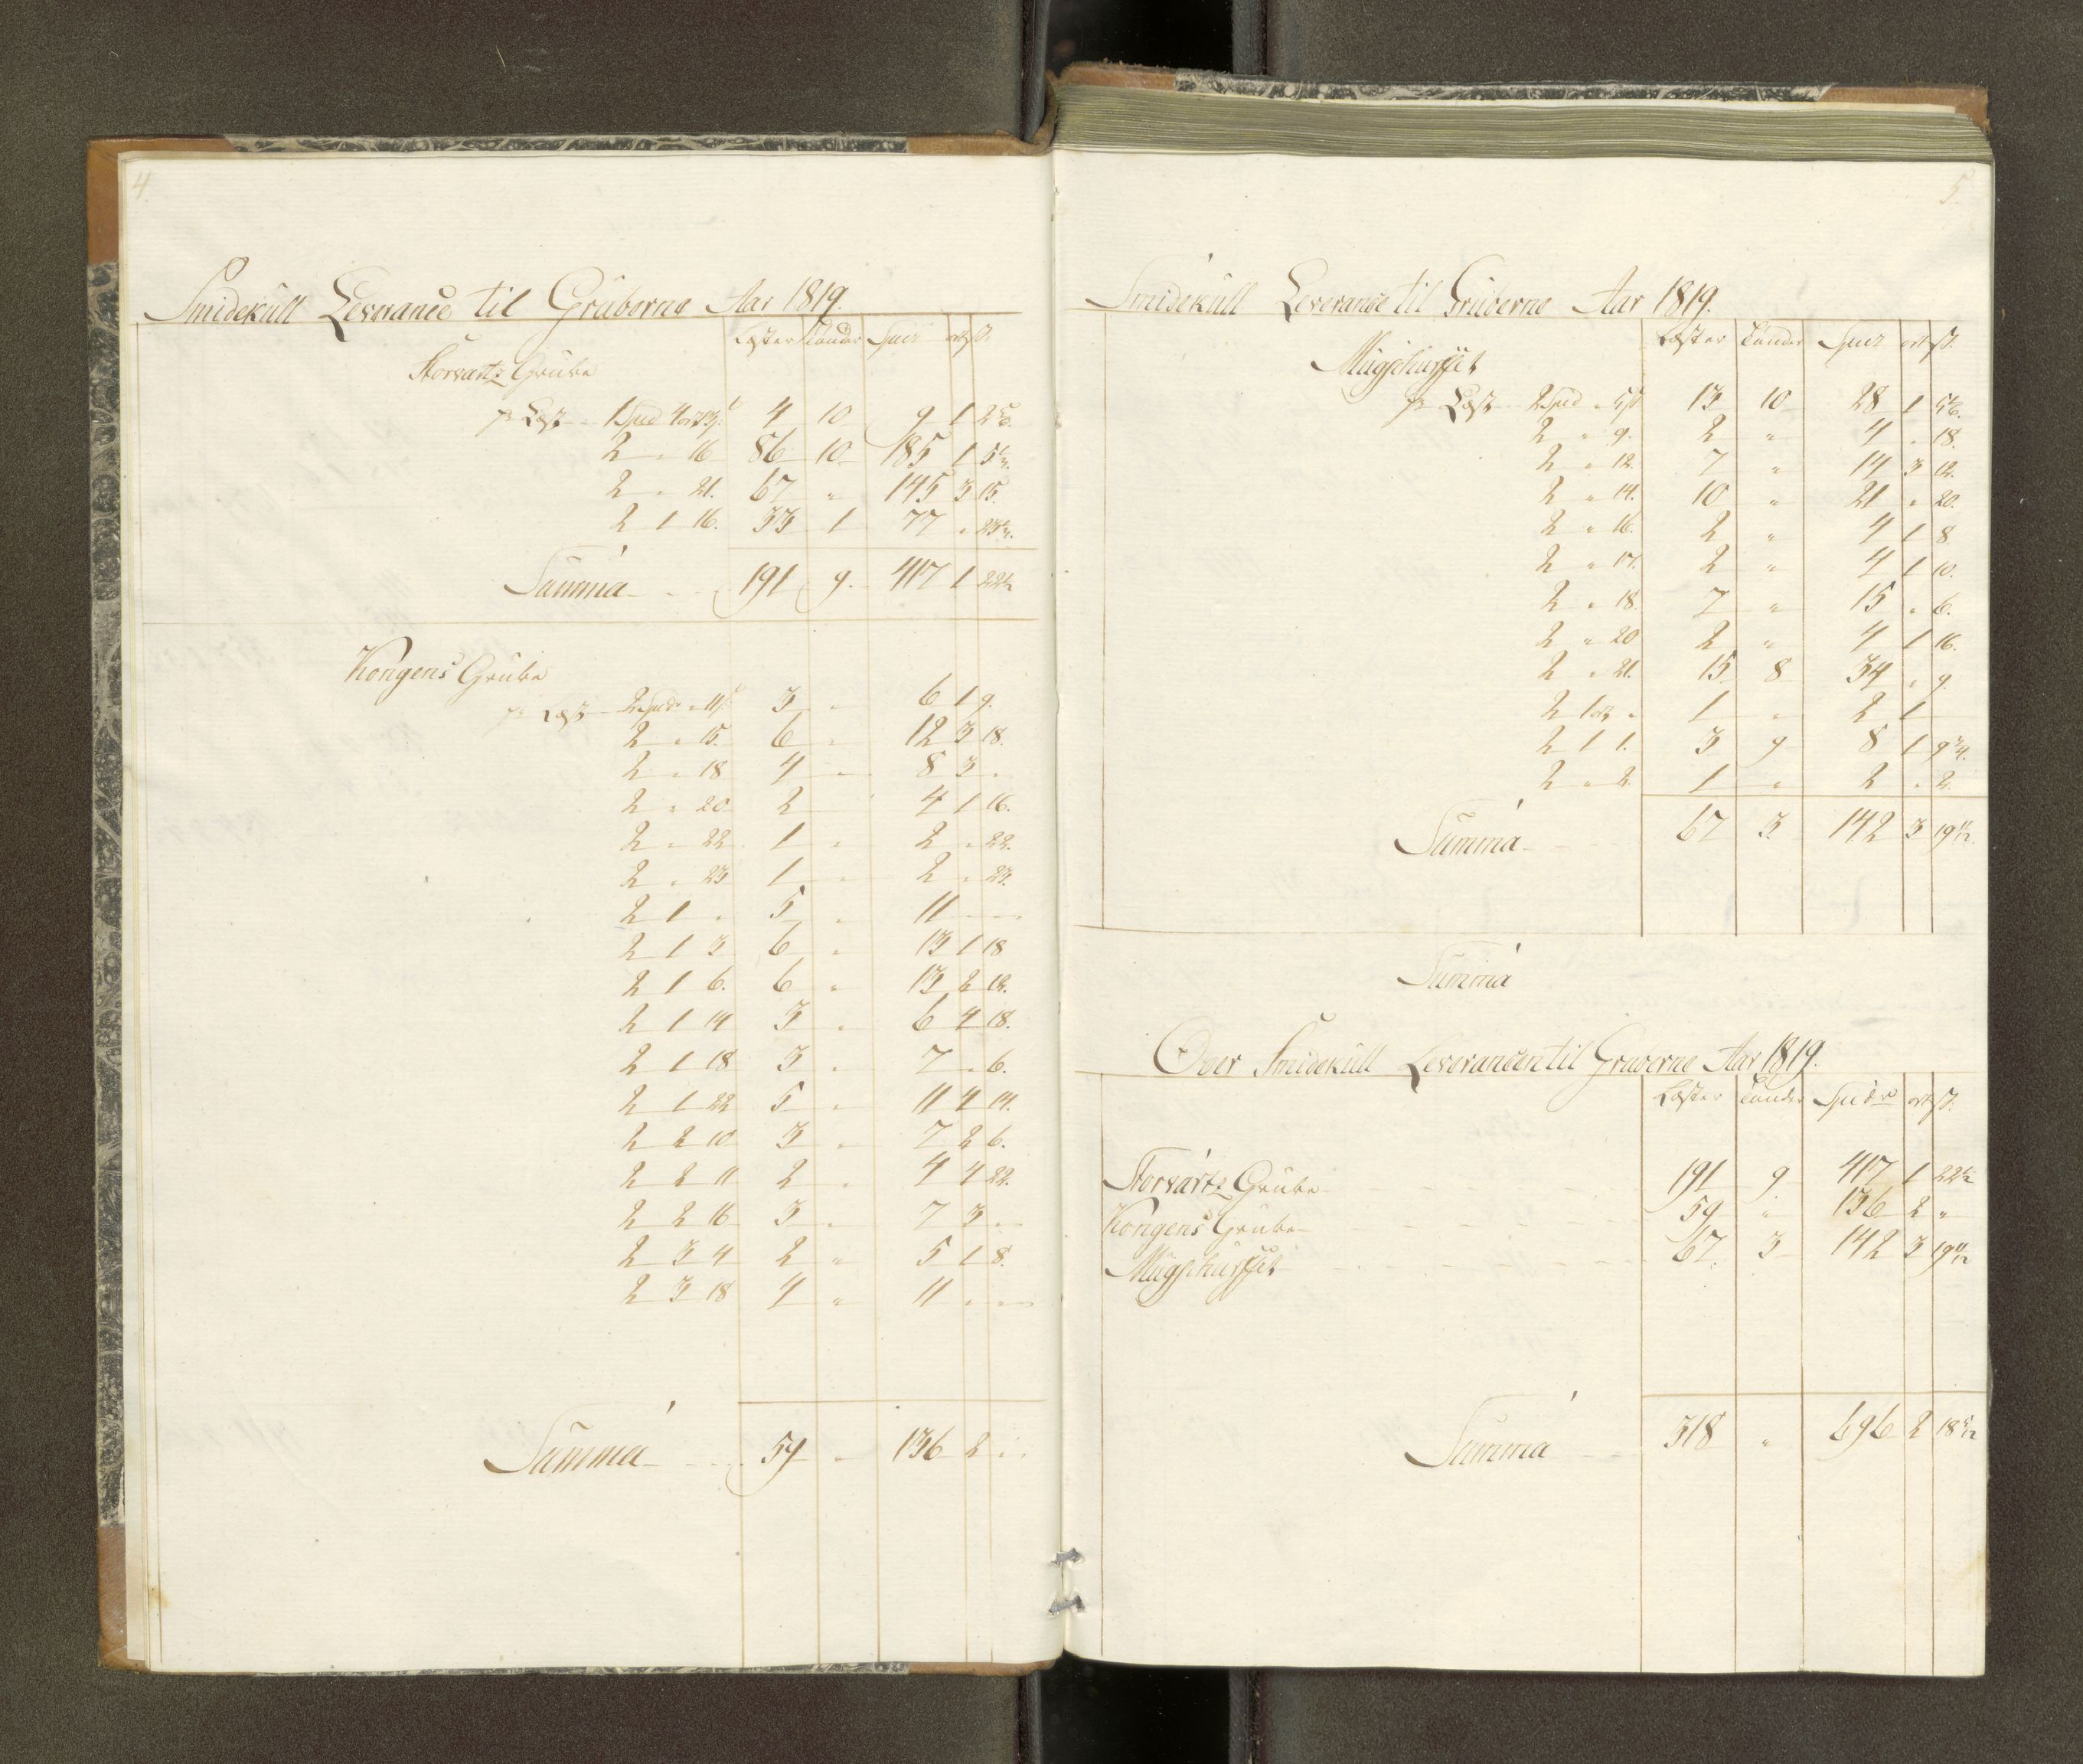 4.
Smidekull Leverance til Gruberne Aar 1819.
Læster Tønder Spd ort ß.
Storvartz Grube
pr Læst 1 Spd 4 ort 3 4 10 9 1 2
2 " 16 86 10 185 1 5
2 " 21. 67 " 145 3 15.
2 1 16. 33 1 77 "
Summa 191 9. 417 1 22
Kongens Grube
pr Læst 2 Spd " 11 ß 3 " 6 1 9.
2 " 15. 6 " 12 3 18.
2 " 18 4 " 8 3 "
2 " 20 2 " 4 1 16.
2 " 22 1 " 2 " 22.
2 " 23 1 " 2 " 23.
2 1 " 5 " 11
2 1 3 6 " 13 1 18
2 1 6. 6 " 13 2 12.
2 1 14 3 " 6 4 18.
2 1 18 3 " 7 " 6.
2 1 22 5 " 11 4 14.
2 2 10 3 " 7 2 6.
2 2 11 2 " 4 4 22.
2 2 16 3 " 7 3 "
2 3 4 2 " 5 1 8.
2 3 18 4 " 11 " "
Summa 59 " 136 2 "
5.
Smidekull Leverance til Gruberne Aar 1819.
Læster Tønder Spd ort ß.
Mugghuset
pr Læst 2 Spd " 5 ß 13 10 28 1
2 " 9. 2 " 4 " 18.
2 " 12. 7 " 14 3 12.
2 " 14. 10 " 21 " 20.
2 " 16. 2 " 4 1 8
2 " 17. 2 " 4 1 10.
2 " 18. 7 " 15 " 6.
2 " 20 2 " 4 1 16.
2 " 21. 15 8 34 " 9.
2 1 ort " 1 " 2 1
2 1 1. 3 9 8 1 9 3/4.
2 " 2. 1 " 2 " 2.
Summa 67 3. 142 3 19 11/12.
Summa
Over Smidekull Leverancen til Gruberne Aar 1819.
Læster Tønder Spd ort ß.
Storvartz Grube 191 9. 417 1 22
Kongens Grube 59 " 136 2 "
Mugghuset 67. 3 142 3 19 11/12
Summa 318 " 696 2 18 5/12